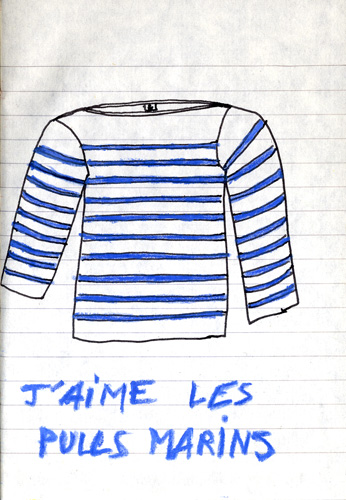 J'AIME LES
PULLS MARINS